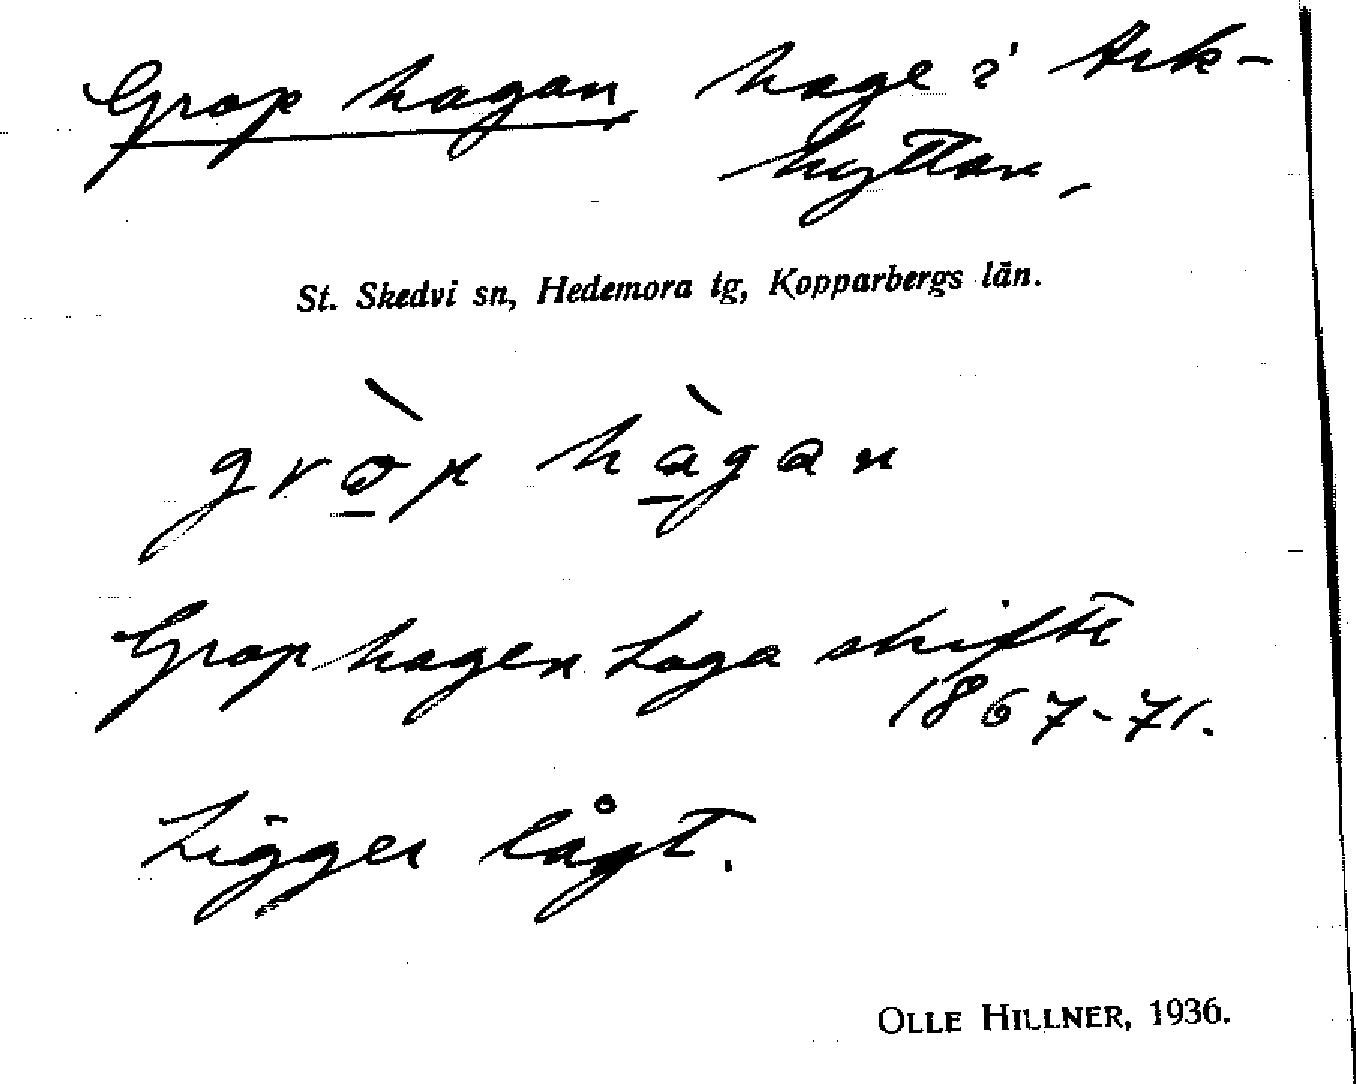 Grophagan, hage i Ark-
hyttan,
St. Skedvi sn, Hedemora tg, Kopparbergs län.
grò̱p hà̱gan
Grophagen Laga skifte
1867-71.
Ligger lågt.
OLLE HILLNER, 1936.